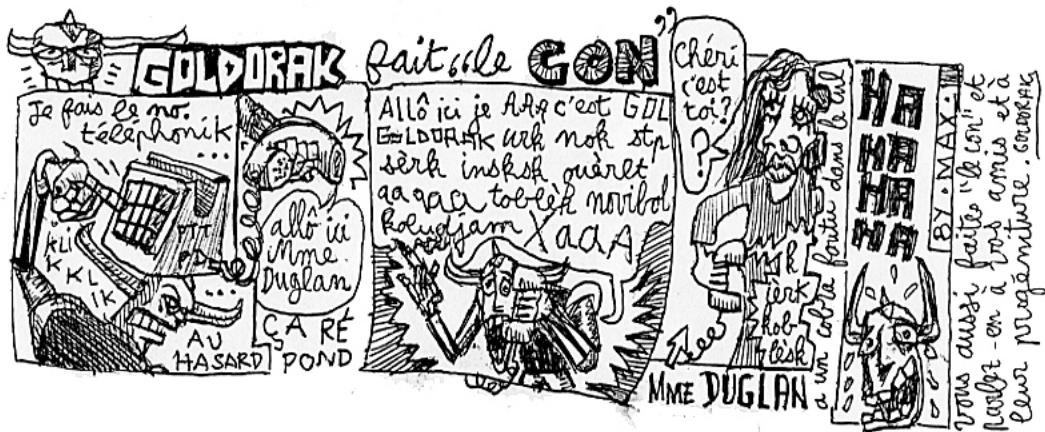 GOLDORAK fait "le CON"
Je fais le no.
téléphonik
...
KLI
K
KL
IK
PTT
...
AU
HASARD
allô ici
Mme
Duglan
ÇA RÉ
POND
Allô ici je AAA c'est GOL
GOLDORAK urk nok stp
sèrk insksk ouèret
aaaaa toblèk novibol
koludjam XaaA
Chéri
c'est
toi?
?
K
ièrk
kob-
lèsk
MME DUGLAN
a un cobra foutu dans le cul
HA
HA
HA
HA
BY·MAX·
vous aussi faites "le con" et
parlez-en à vos amis et à
leur progéniture. GOLDORAK